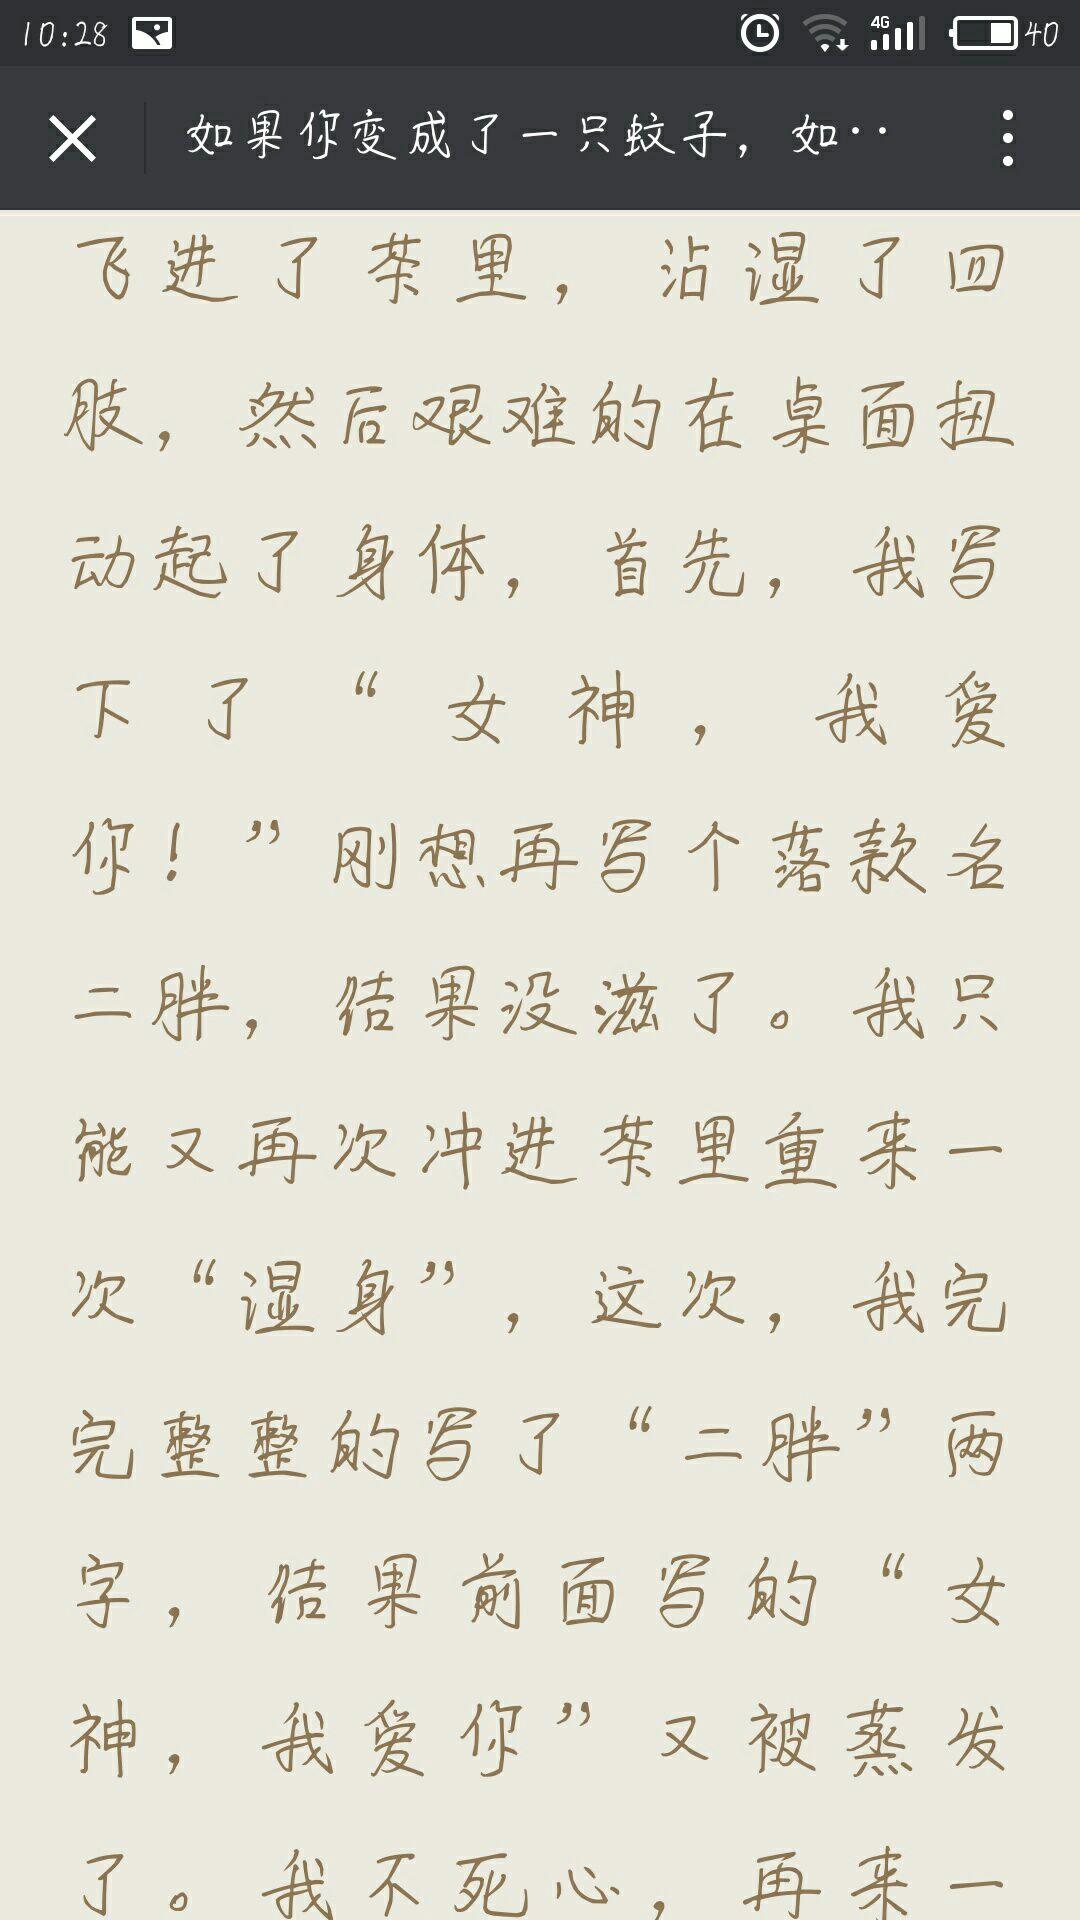 10:28
4G
40
如果你变成了一只蚊子，如··
飞进了茶里，沾湿了四
肢，然后艰难的在桌面扭
动起了身体，首先，我写
下了“女神，我爱
你！”刚想再写个落款名
二胖，结果没滋了。我只
能又再次冲进茶里重来一
次“湿身”，这次，我完
完整整的写了“二胖”两
字，结果前面写的“女
神，我爱你”又被蒸发
了。我不死心，再来一